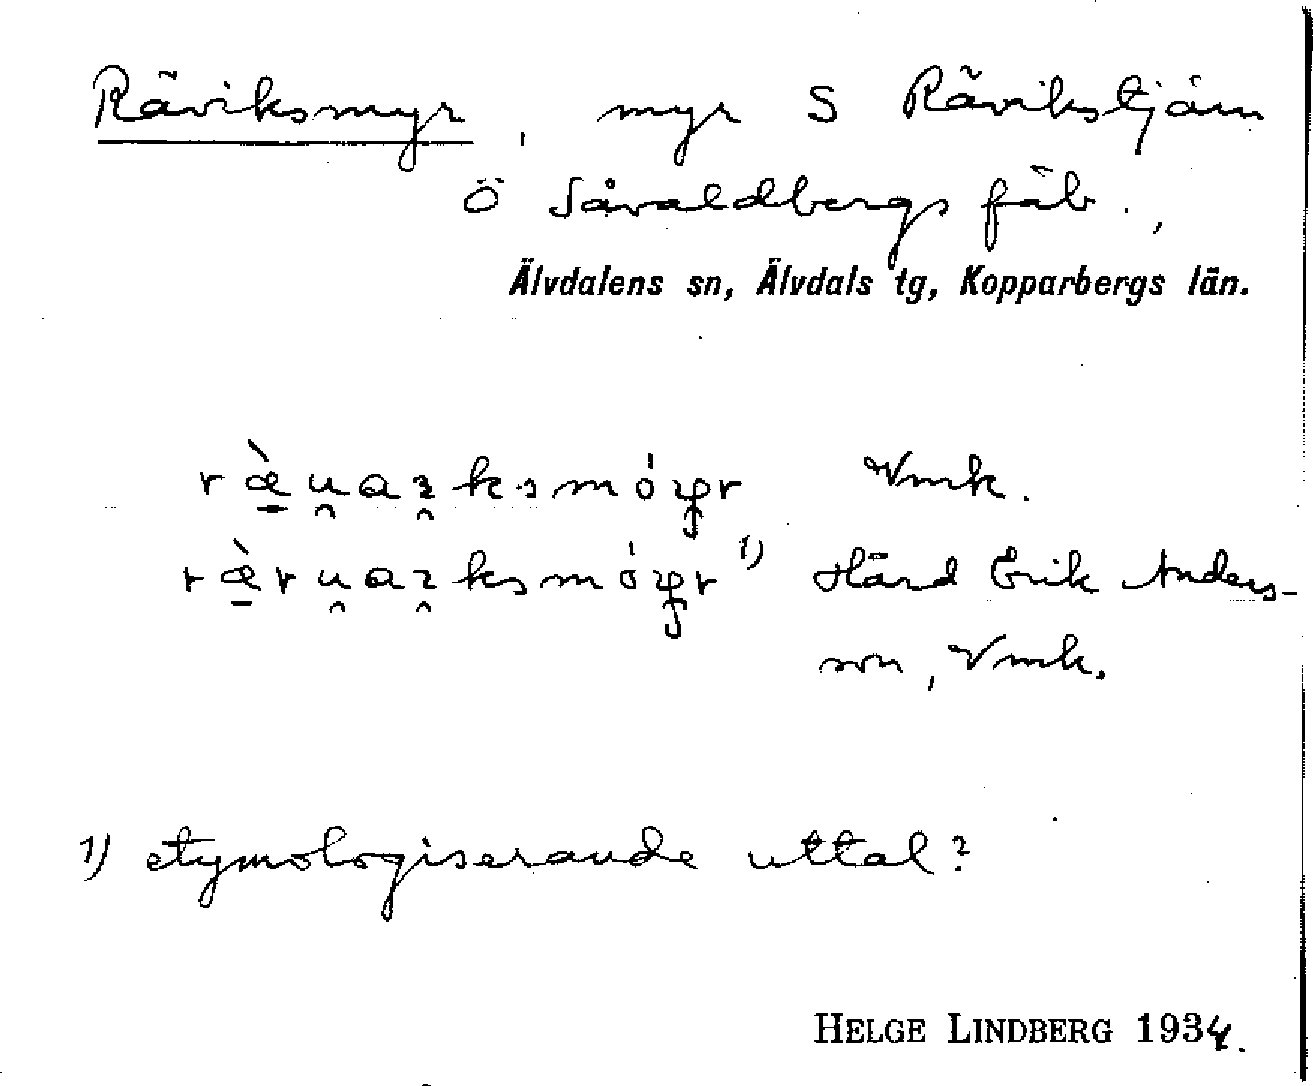 Räviksmyr, myr S Rävikstjärn
Ö Såvaldbergs fäb.,
Älvdalens sn, Älvdals tg, Kopparbergs län.
Vmk.
1) Härd Erik Anders-
son, Vmk.
1) etymologiserande uttal?
HELGE LINDBERG 1934.